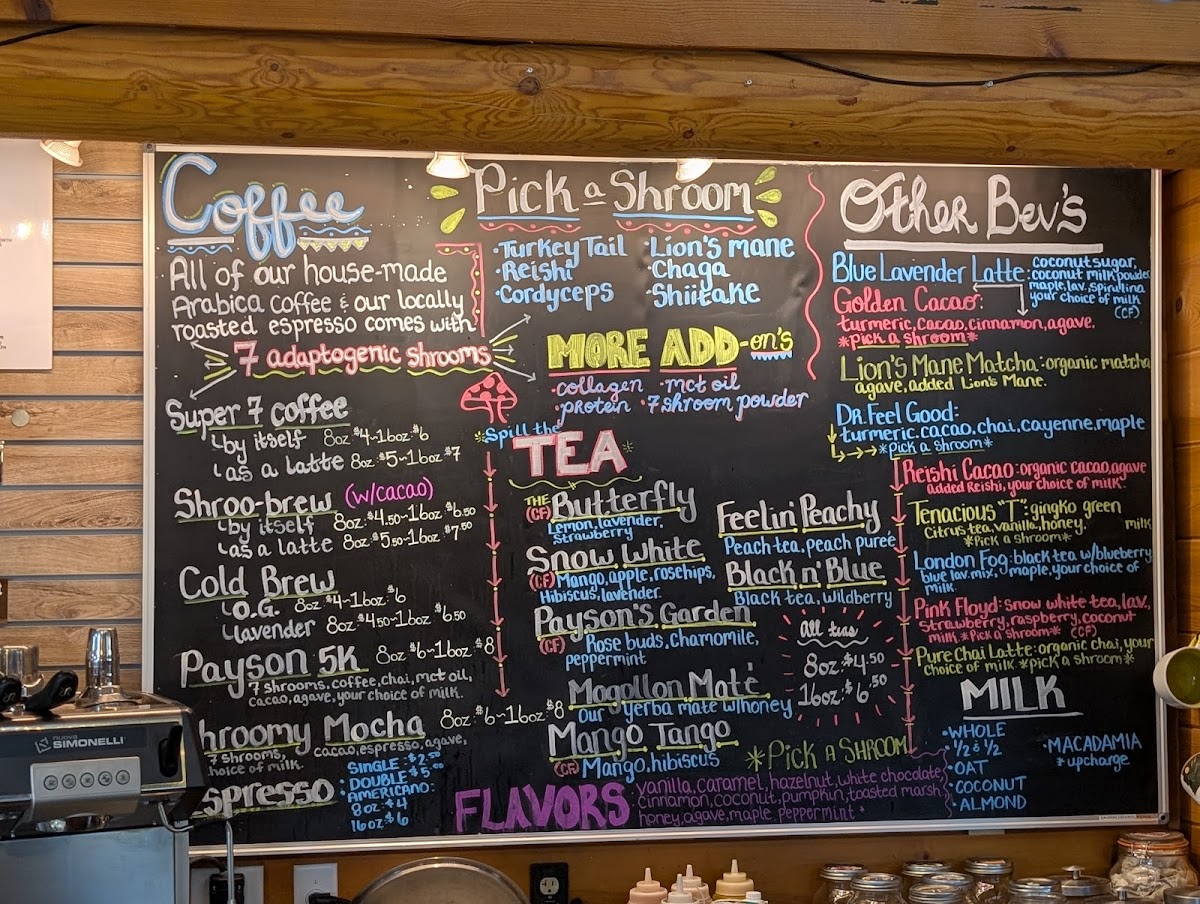 Coffee
All of our house-made
Arabica coffee & our locally
roasted espresso comes with
7 adaptogenic shrooms
Super 7 coffee
by itself 8oz:$4~16oz:$6
as a latte 8oz:$5~16oz:$7
Shroo-brew (w/cacao)
by itself 8oz:$4.50~16oz:$6.50
as a latte 8oz:$5.50~16oz:$7.50
Cold Brew
O.G. 8oz:$4~16oz:$6
lavender 8oz:$4.50~16oz:$6.50
Payson 5K 8oz:$6~16oz:$8
7 shrooms, coffee, chai, mct oil,
cacao, agave, your choice of milk.
hroomy Mocha 8oz:$6~16oz:$8
7 shrooms, cacao, espresso, agave,
hoice of milk.
spresso
•SINGLE:
•DOUBLE:
AMERICANO:
8oz:$4
16oz:$6
Pick a Shroom
•Turkey Tail •Lion's mane
•Reishi •Chaga
•Cordyceps •Shiitake
MORE ADD-on's
•collagen •mct oil
•protein •7 shroom powder
Spill the
TEA
THE (CF) Butterfly
Lemon, lavender,
strawberry
Snow White
(CF) Mango, apple, rosehips,
Hibiscus, lavender.
Payson's Garden
(CF) Rose buds, chamomile,
peppermint
Mogollon Maté
Our yerba mate w/honey
Mango Tango
(CF) Mango, hibiscus
Feelin' Peachy
Peach tea, peach pureé
Black n' Blue
Black tea, wildberry
all teas
8oz:$4.50
16oz:$6.50
*Pick a Shroom
FLAVORS
vanilla, caramel, hazelnut, white chocolate,
cinnamon, coconut, pumpkin, toasted marsh,
honey, agave, maple, peppermint
Other Bev's
Blue Lavender Latte: coconut sugar,
coconut milk powder,
maple, lav, spirulina
your choice of milk
(CF)
Golden Cacao:
turmeric, cacao, cinnamon, agave.
*pick a shroom*
Lion's Mane Matcha: organic matcha
agave, added Lion's Mane.
Dr. Feel Good:
turmeric, cacao, chai, cayenne, maple
*pick a shroom*
Reishi Cacao: organic cacao, agave
added Reishi, your choice of milk.
Tenacious "T": gingko green
citrus tea, vanilla, honey. milk
*Pick a shroom*
London Fog: black tea w/blueberry
blue lav. mix, maple, your choice of
milk.
Pink Floyd: snow white tea, lav,
strawberry, raspberry, coconut
milk *Pick a shroom* (CF)
Pure Chai Latte: organic chai, your
choice of milk *pick a shroom*
MILK
•WHOLE
•½ & ½
•OAT
•COCONUT
•ALMOND
•MACADAMIA
*upcharge
nuova
SIMONELLI